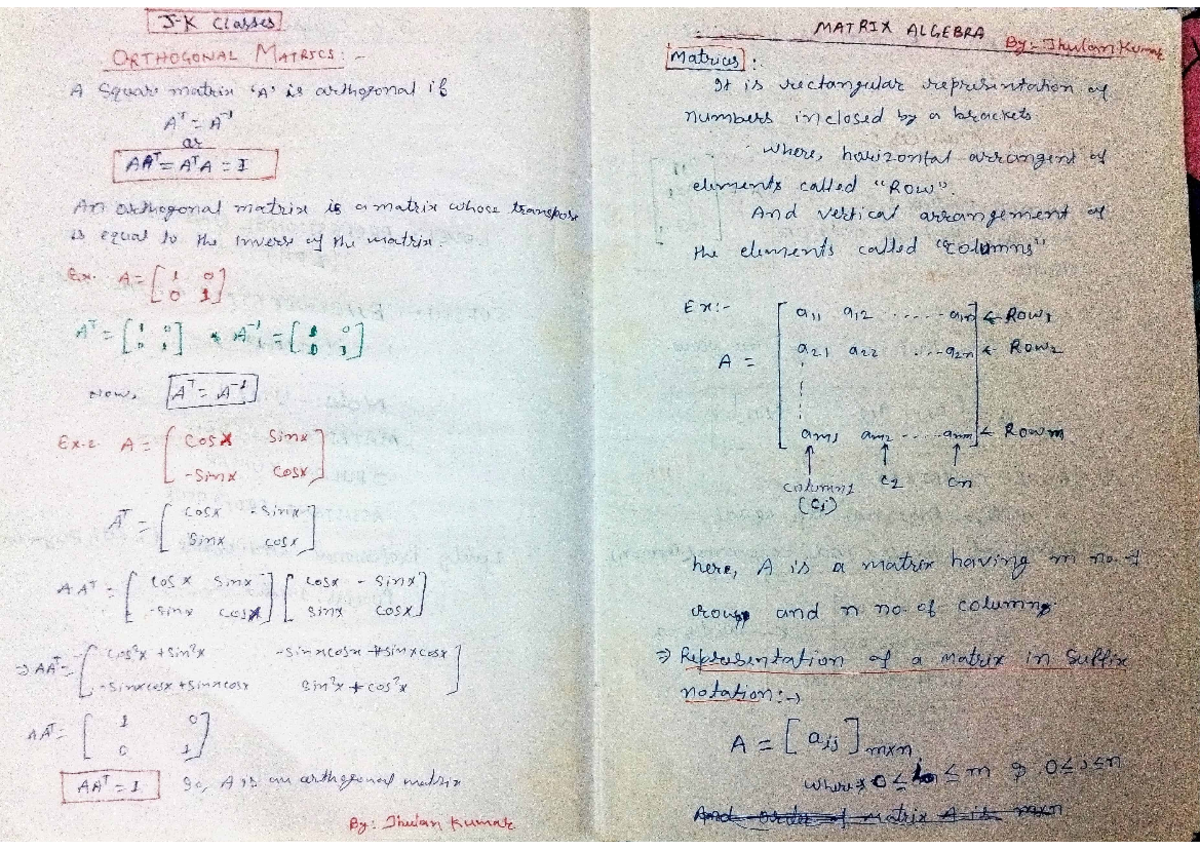 J-K Classes
ORTHOGONAL MATRICS :-
A Square matrix 'A' is orthogonal if
Aᵀ = A⁻¹
or
AAᵀ = AᵀA = I
An orthogonal matrix is a matrix whose transpose
is equal to the inverse of the matrix
Ex. A = [ 1 0
0 1 ]
Aᵀ = [ 1 0
0 1 ] & A⁻¹ = [ 1 0
0 1 ]
Now, Aᵀ = A⁻¹
Ex-2 A = [ cosx sinx
-sinx cosx ]
Aᵀ = [ cosx -sinx
sinx cosx ]
A.Aᵀ = [ cosx sinx
-sinx cosx ] [ cosx -sinx
sinx cosx ]
⇒ AAᵀ = [ cos²x + sin²x -sinxcosx + sinxcosx
-sinxcosx + sinxcosx sin²x + cos²x ]
AAᵀ = [ 1 0
0 1 ]
AAᵀ = I So, A is an orthogonal matrix
By: Jhulan Kumar
MATRIX ALGEBRA
By:- Jhulan Kumar
Matrices :
It is rectangular representation of
numbers inclosed by a brackets.
where, horizontal arrangent of
elements called "Row".
And vertical arrangement of
the elements called "columns"
Ex:-
A = [ a₁₁ a₁₂ ...... a₁ₙ ← Row₁
a₂₁ a₂₂ ... a₂ₙ ← Row₂
aₘ₁ aₘ₂ ..... aₘₙ ] ← Row m
column1 c₂ cₙ
(c₁)
here, A is a matrix having m no. of
rows and n no. of columns.
⇒ Representation of a matrix in suffix
notation:→
A = [ aᵢⱼ ]ₘₓₙ
where 0 ≤ i ≤ m & 0 ≤ j ≤ n
And order of matrix A is mxn